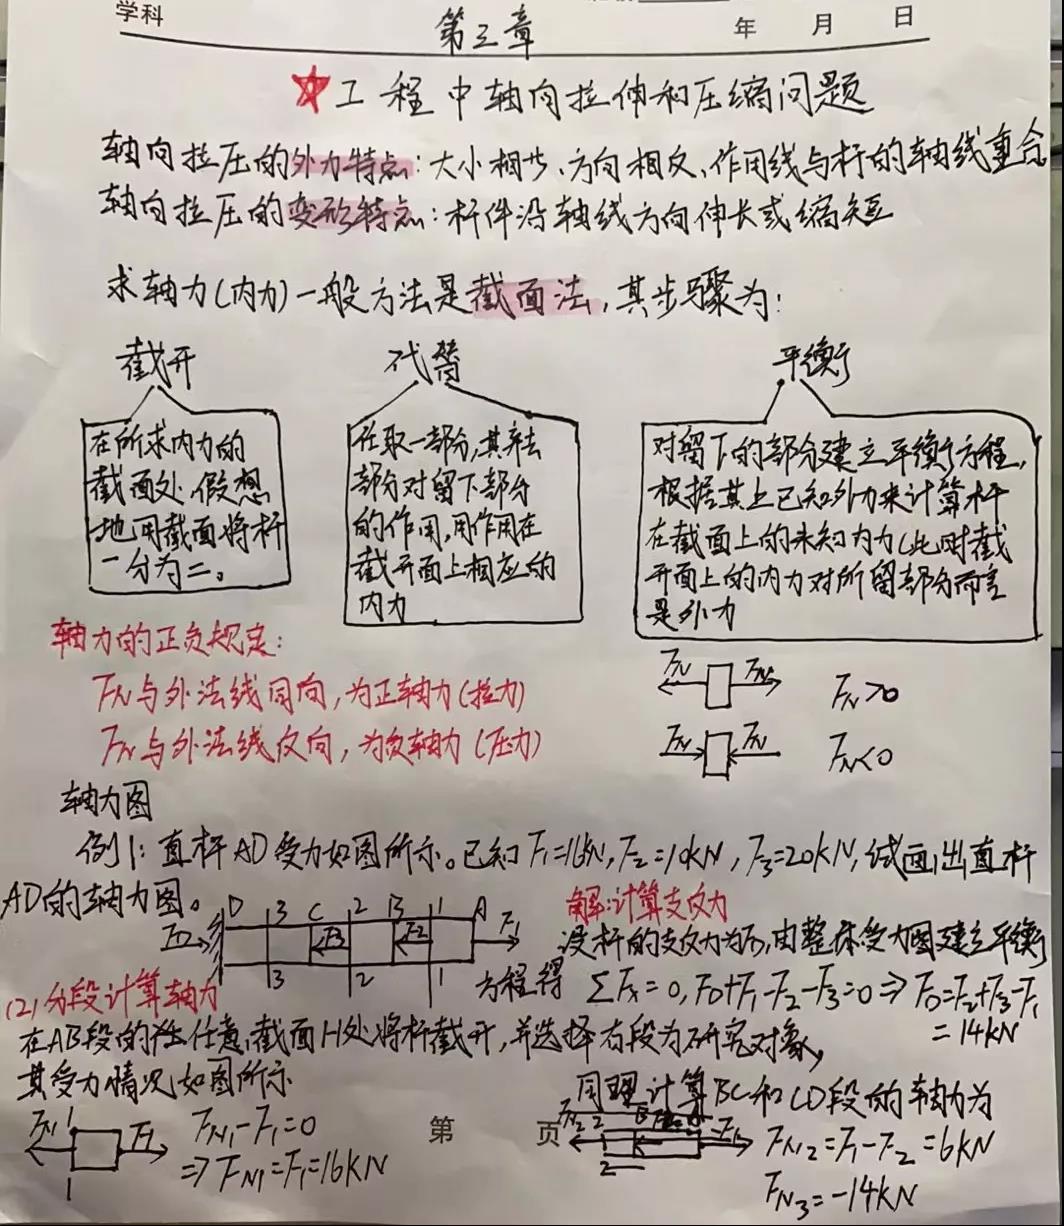 学科
第三章
年 月 日
工程中轴向拉伸和压缩问题
轴向拉压的外力特点:大小相等、方向相反、作用线与杆的轴线重合
轴向拉压的变形特点:杆件沿轴线方向伸长或缩短
求轴力(内力)一般方法是截面法,其步骤为:
截开
在所求内力的
截面处,假想
地用截面将杆
一分为二。
代替
任取一部分,其弃去
部分对留下部分
的作用,用作用在
截开面上相应的
内力
平衡
对留下的部分建立平衡方程,
根据其上已知外力来计算杆
在截面上的未知内力(此时截
开面上的内力对所留部分而言
是外力
轴力的正负规定:
FN与外法线同向,为正轴力(拉力)
FN与外法线反向,为负轴力(压力)
FN FN FN>0
FN FN FN<0
轴力图
例1:直杆AD受力如图所示。已知F1=16kN,F2=10kN,F3=20kN,试画出直杆
AD的轴力图。
D 3 C 2 B 1 A
FD F3 F2 F1
3 2 1
解:计算支反力
设杆的支反力为FD,由整体受力图建立平衡
方程得 ΣFx=0,FD+F1-F2-F3=0⇒FD=F2+F3-F1
=14kN
(2)分段计算轴力
在AB段的任意截面1-1处将杆截开,并选择右段为研究对象,
其受力情况如图所示
FN1 1 F1
1
FN1-F1=0
⇒FN1=F1=16kN
第 页
同理计算BC和CD段的轴力为
FN2 2 B F2 F1
2
FN2=F1-F2=6kN
FN3=-14kN